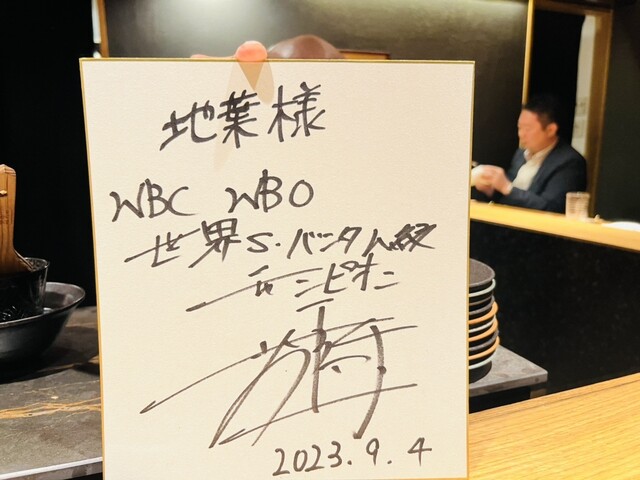 地葉様
WBC WBO
世界S.バンタム級
チャンピオン
2023.9.4